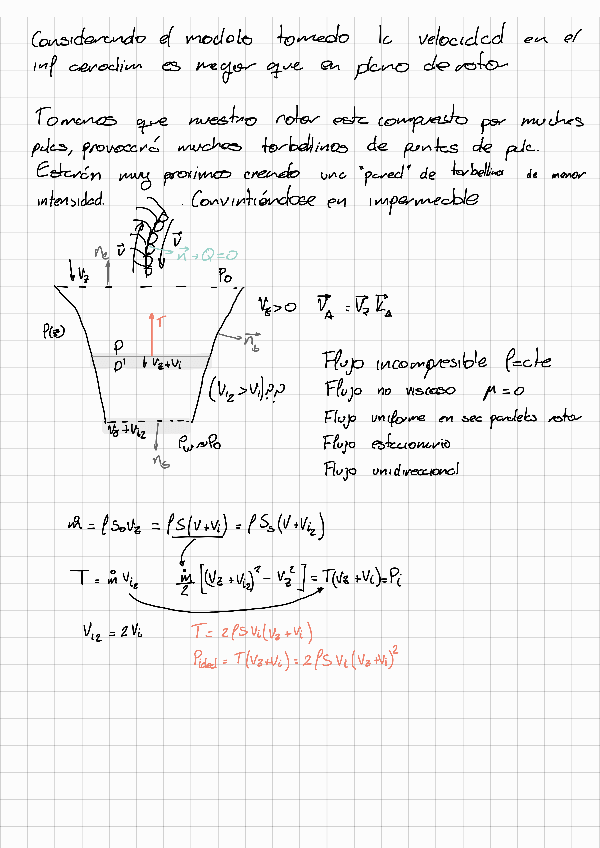 Considerando el modelo tomado la velocidad en el
inf ceroadim es mayor que en plano de rotor
Tomamos que nuestro rotor este compuesto por muchas
palas, provocará muchos torbellinos de puntas de pala.
Estarán muy proximos creando una "pared" de torbellinos de menor
intensidad. . Convirtiéndose en impermeable
n⃗ → Q=0
v⃗ v⃗
n_e
V_z P_0
V_z>0 V⃗_A = V⃗_z K⃗_A
P(z) T
n⃗_t
P
P' V_z+V_i
(V_i2 > V_i)??
V_z+V_i2
P_w≈P_0
n_s
Flujo incompresible ρ=cte
Flujo no viscoso μ=0
Flujo uniforme en sec paralela rotor
Flujo estacionario
Flujo unidireccional
ṁ = ρS_0V_z = ρS(V+V_i) = ρS_s(V+V_i2)
T = ṁ V_i2 ṁ/2 [(V_z+V_i2)² − V_z²] = T(V_z+V_i)=P_i
V_i2 = 2V_i T = 2ρSV_i(V_z+V_i)
P_ideal = T(V_z+V_i) = 2ρSV_i(V_z+V_i)²